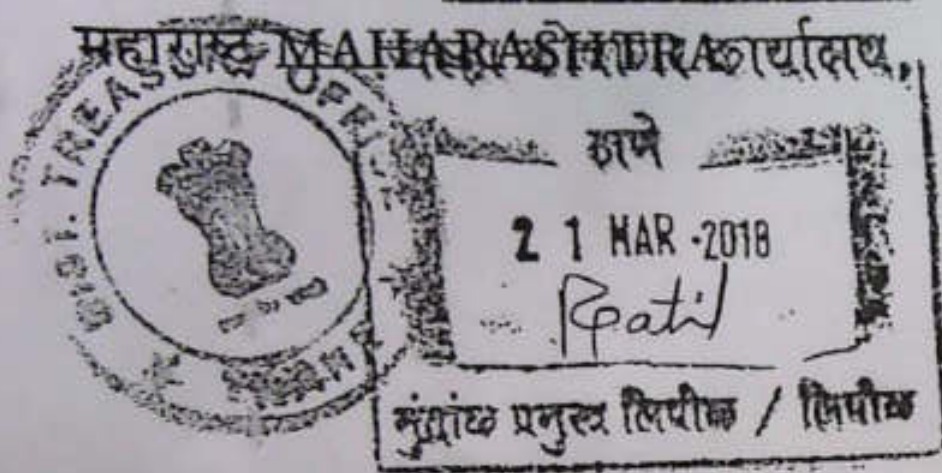 महाराष्ट्र MAHARASHTRA कार्यालय,
DIST. TREASURY OFFICE
ठाणे
21 MAR 2018
Patil
मुद्रांक प्रमुख लिपीक / लिपीक